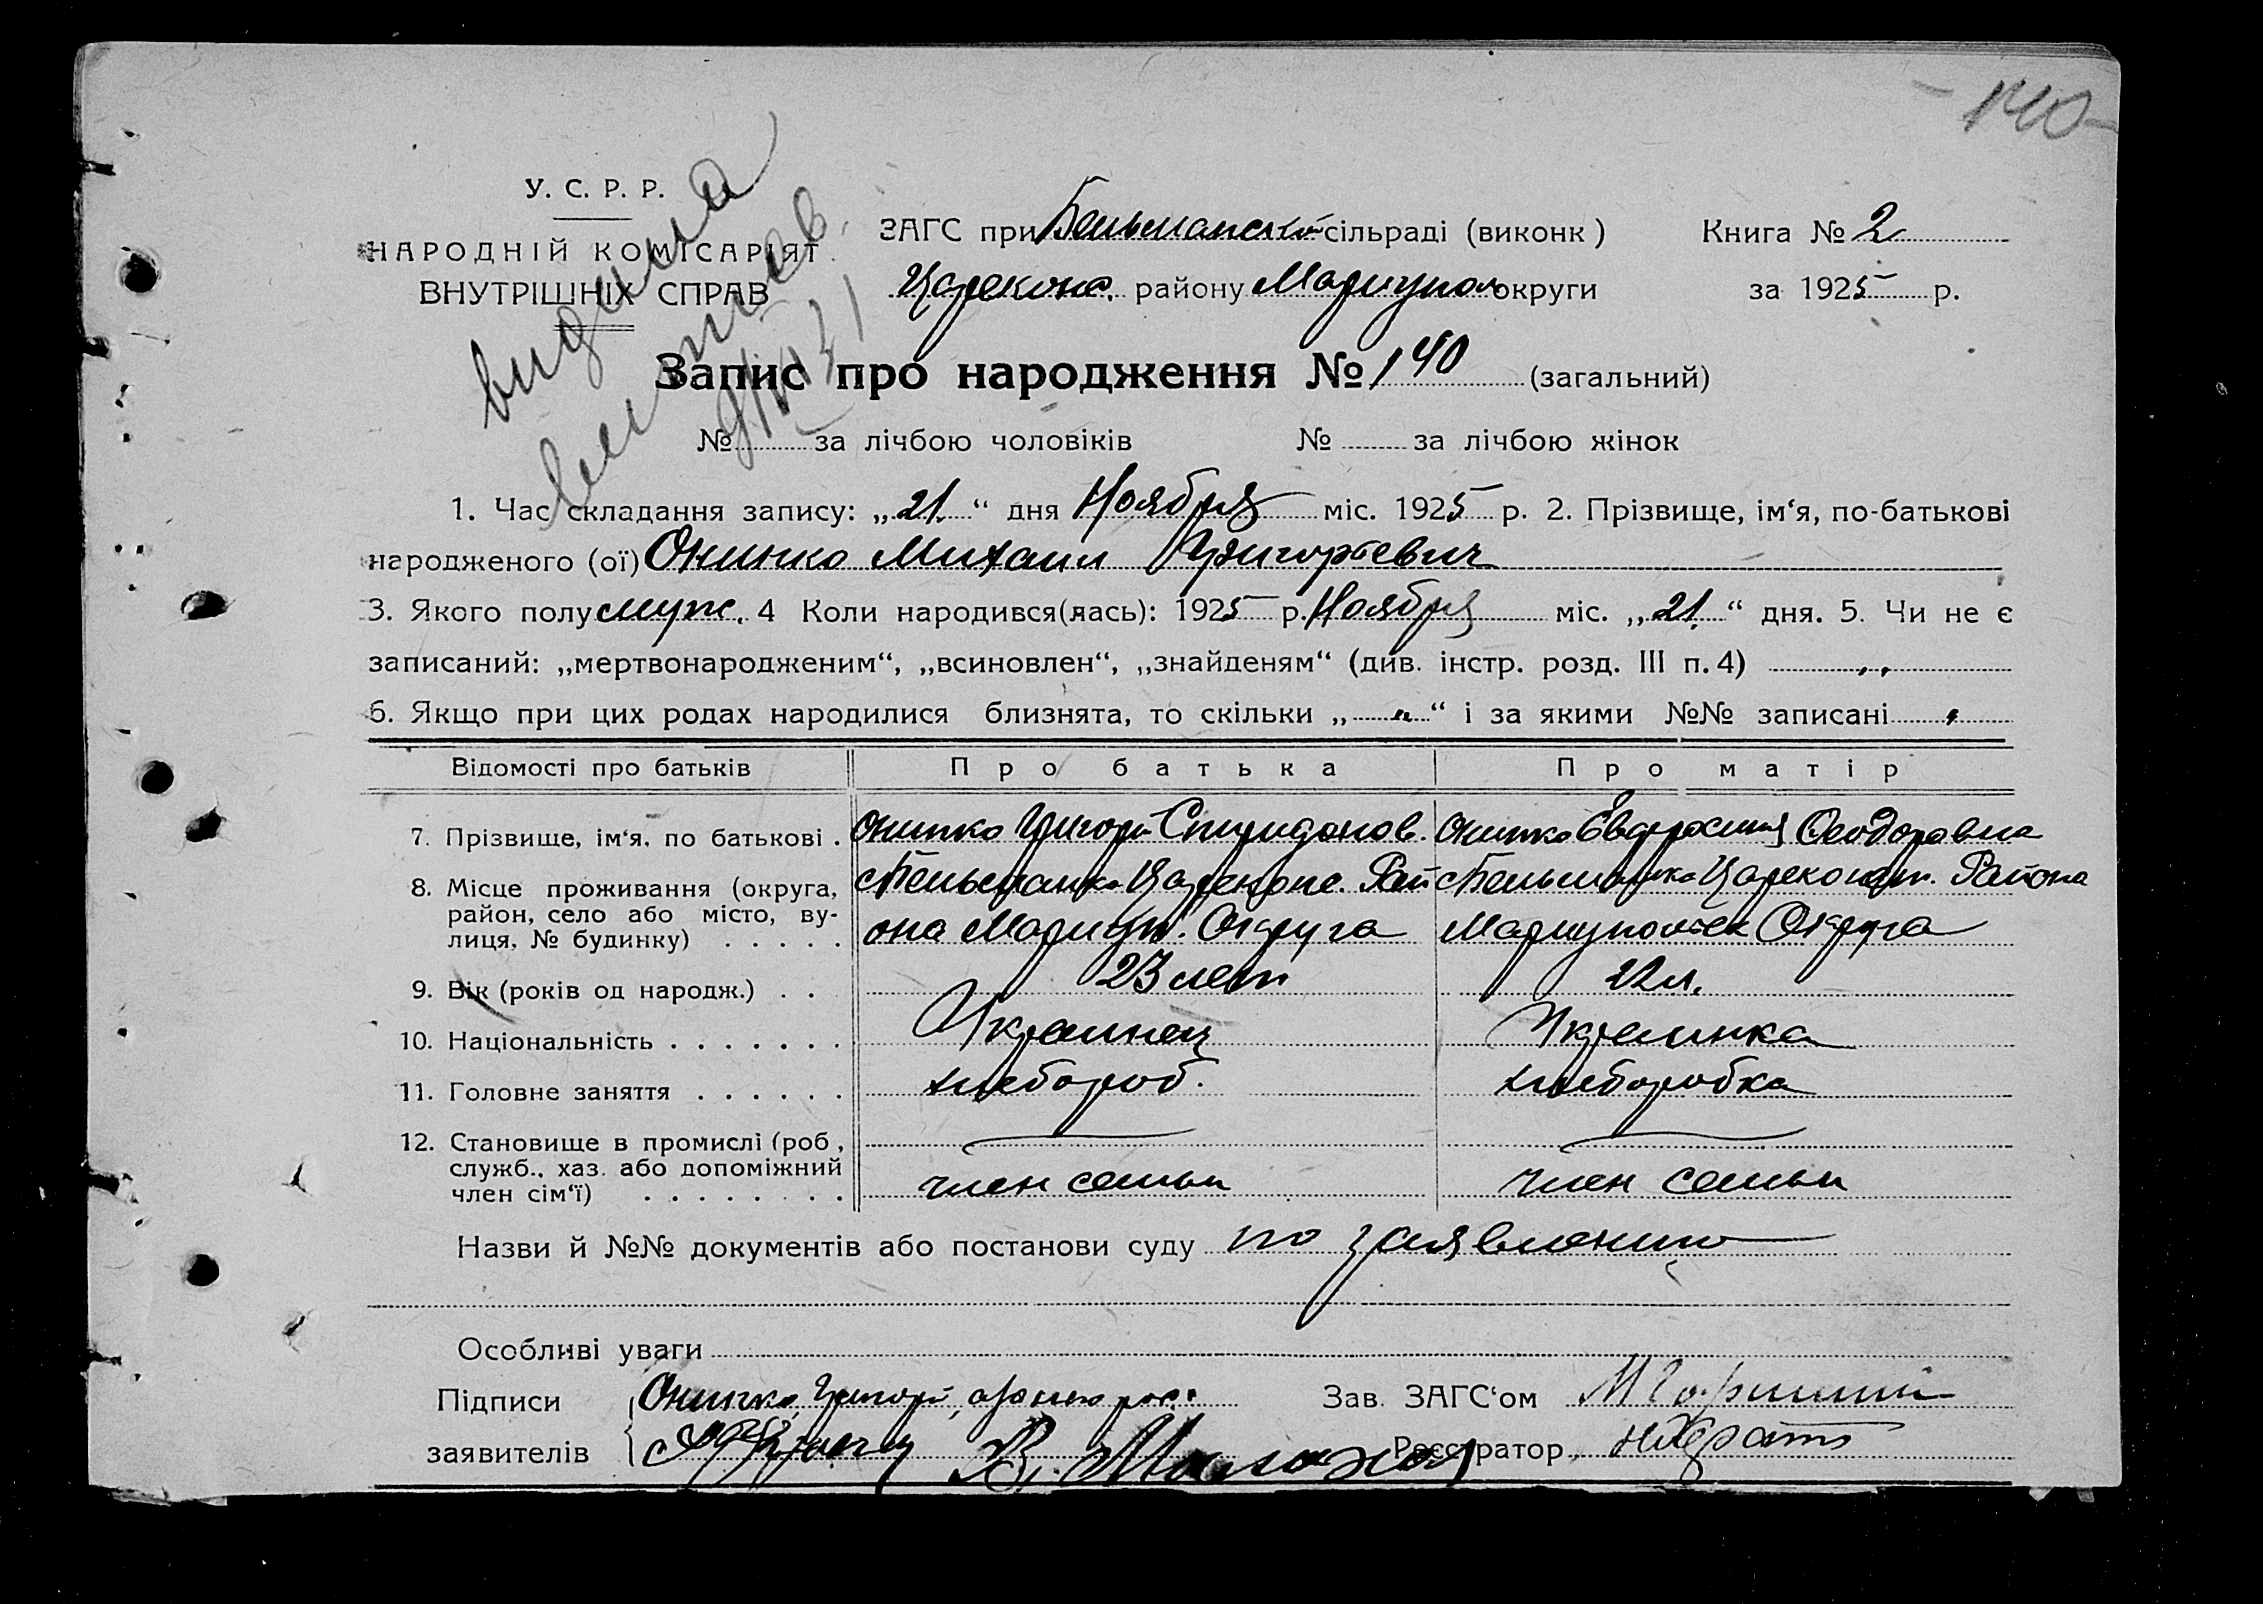 140
У. С. Р. Р.
НАРОДНІЙ КОМІСАРІЯТ
ВНУТРІШНІХ СПРАВ
видана
9/IV 31
ЗАГС при Бельманск сільраді (виконк) Книга № 2
Царекона. району Мариупол округи за 1925 р.
Запис про народження № 140 (загальний)
№ за лічбою чоловіків № за лічбою жінок
1. Час складання запису: „21.“ дня Ноября міс. 1925 р. 2. Прізвище, ім‘я, по-батькові
народженого (ої) Онипко Михаил Григорьевич
3. Якого полу муж. 4 Коли народився(лась): 1925 р. Ноября міс. „21.“ дня. 5. Чи не є
записаний: „мертвонародженим“, „всиновлен“, „знайденям“ (див. інстр. розд. III п. 4) „
6. Якщо при цих родах народилися близнята, то скільки „ „ “ і за якими №№ записані „
Відомості про батьків Про батька Про матір
7. Прізвище, ім‘я, по батькові . Онипко Григори Спиридонов. Онипко Евдросиния Феодоровна
8. Місце проживання (округа, с Бельманка Царекопс. Рай с Бельманка Царекост. Района
район, село або місто, ву- она Мариуп. Округа Мариупольск Округа
лиця, № будинку) . . . . .
9. Вік (років од народж.) . . 23 лет 22 л.
10. Національність . . . . . . . Украинец Украинка
11. Головне заняття . . . . . . хлебороб. хлеборобка
12. Становище в промислі (роб,
служб., хаз. або допоміжний член семьи член семьи
член сім‘ї) . . . . . . . .
Назви й №№ документів або постанови суду по заявлению
Особливі уваги
Підписи Онипко, Григори, Зав. ЗАГС‘ом
заявителів Реєстратор